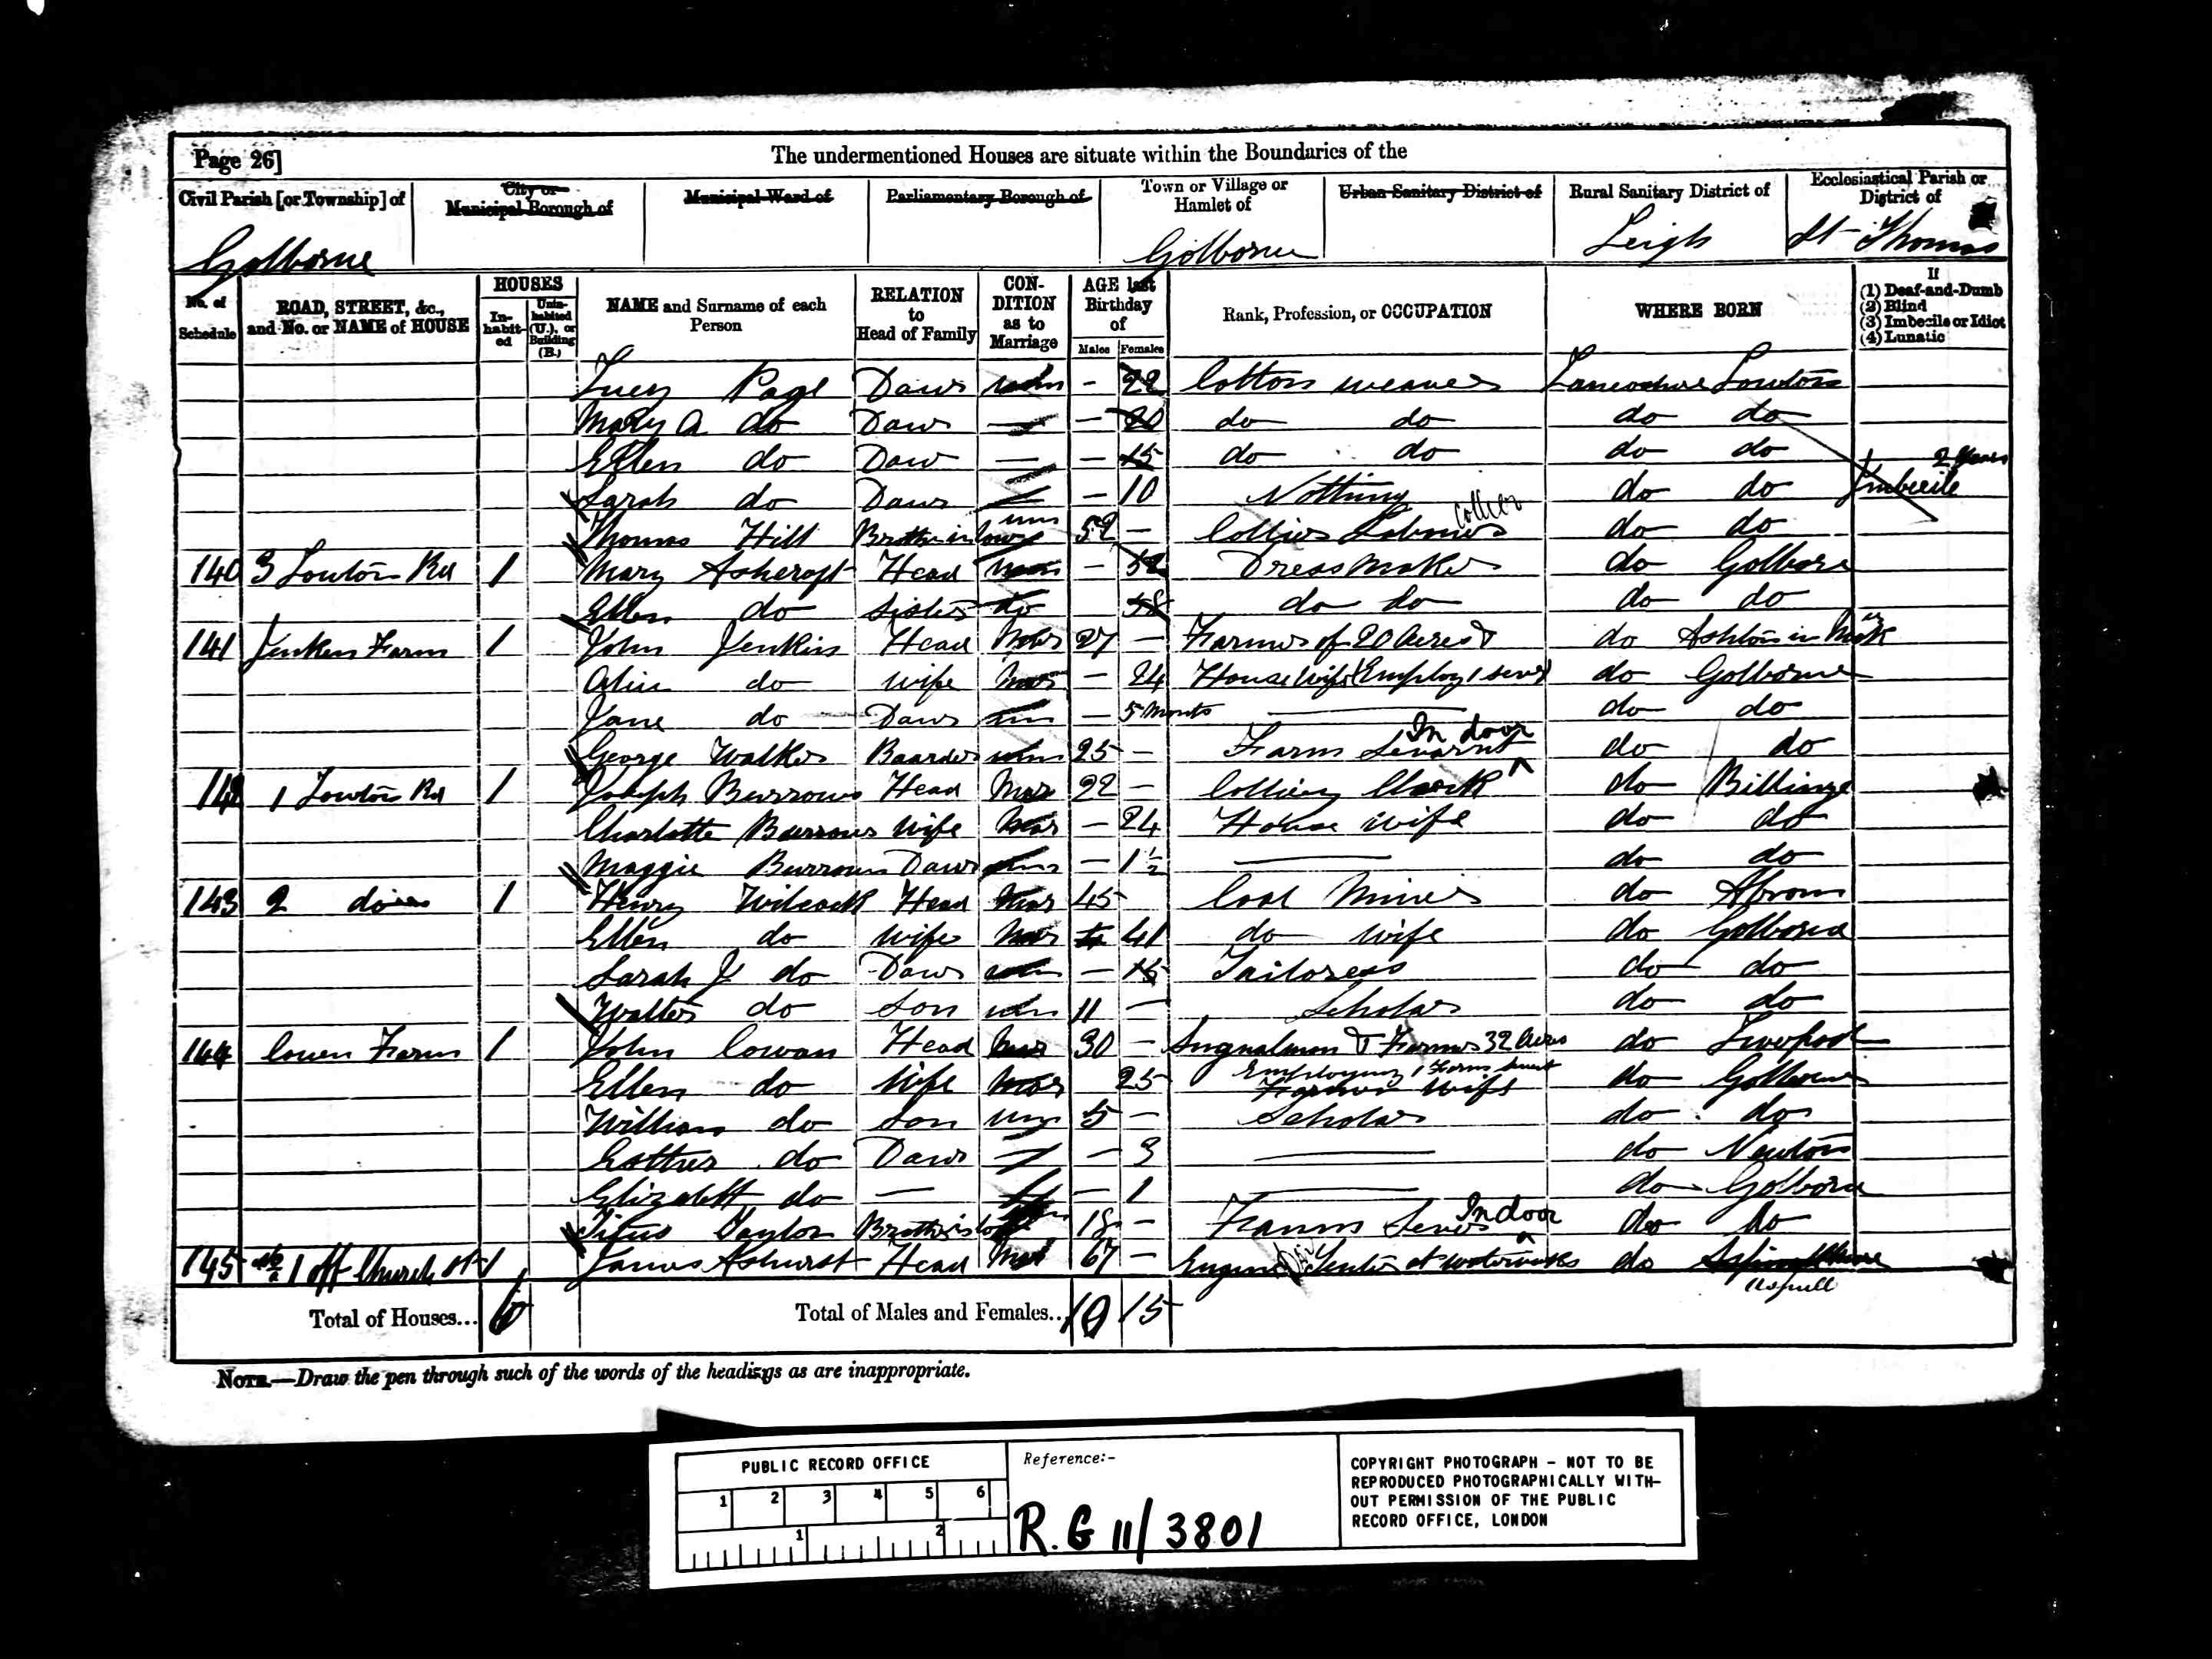 Page 26]
The undermentioned Houses are situate within the Boundaries of the
Civil Parish [or Township] of
City or Municipal Borough of
Municipal Ward of
Parliamentary Borough of
Town or Village or Hamlet of
Urban Sanitary District of
Rural Sanitary District of
Ecclesiastical Parish or District of
Golborne Golborne Leigh St Thomas
No. of Schedule
ROAD, STREET, &c., and No. or NAME of HOUSE
HOUSES
Inhabited
Uninhabited (U.), or Building (B.)
NAME and Surname of each Person
RELATION to Head of Family
CONDITION as to Marriage
AGE last Birthday of
Males Females
Rank, Profession, or OCCUPATION
WHERE BORN
If
(1) Deaf-and-Dumb
(2) Blind
(3) Imbecile or Idiot
(4) Lunatic
Lucy Page Daur unm - 22 Cotton weaver Lancashire Lowton
Mary A do Daur - - 20 do do do do
Ellen do Daur - - 15 do do do do
Sarah do Daur - - 10 Nothing do do Imbecile 2 years
Thomas Hill Brother in law unm 52 - Colliery Labourer collier do do
140 3 Lowton Rd 1 Mary Ashcroft Head - 52 Dress Maker do Golborne
Ellen do Sister do 58 do do do do
141 Jenkin Farm 1 John Jenkins Head Mar 27 - Farmer of 20 Acres & do Ashton in Mak
Alice do wife Mar - 24 House Wife Employ 1 servt do Golborne
Jane do Daur unm - 5 Months do do
George Walker Boarder unm 25 - Farm Servant In door do do
142 1 Lowton Rd 1 Joseph Burrows Head Mar 22 - Colliery Clerk do Billinge
Charlotte Burrows Wife Mar - 24 House wife do do
Maggie Burrows Daur unm - 1½ do do
143 2 do 1 Henry Wilcock Head Mar 45 Coal Miner do Abram
Ellen do Wife Mar 41 do wife do Golborne
Sarah J do Daur unm - 15 Tailoress do do
Walter do Son unm 11 - Scholar do do
144 Cowen Farm 1 John Cowan Head Mar 30 - Singnalman & Farmer 32 Acres do Liverpool
Employing 1 Farm Servt
Ellen do Wife Mar 25 Farmer Wife do Golborne
William do Son unm 5 - Scholar do do
Esther do Daur - 3 do Newton
Elizabeth do - - 1 do Golborne
Titus Taylor Brother in law 18 - Farm Servt Indoor do do
145 No 1 off Church St 1 James Ashurst Head Mar 67 - Engine Tenter at waterworks do
Aspull
Total of Houses... 6
Total of Males and Females... 10 15
NOTE.—Draw the pen through such of the words of the headings as are inappropriate.
PUBLIC RECORD OFFICE
1 2 3 4 5 6
1 2
Reference:-
R.G 11/3801
COPYRIGHT PHOTOGRAPH - NOT TO BE
REPRODUCED PHOTOGRAPHICALLY WITH-
OUT PERMISSION OF THE PUBLIC
RECORD OFFICE, LONDON